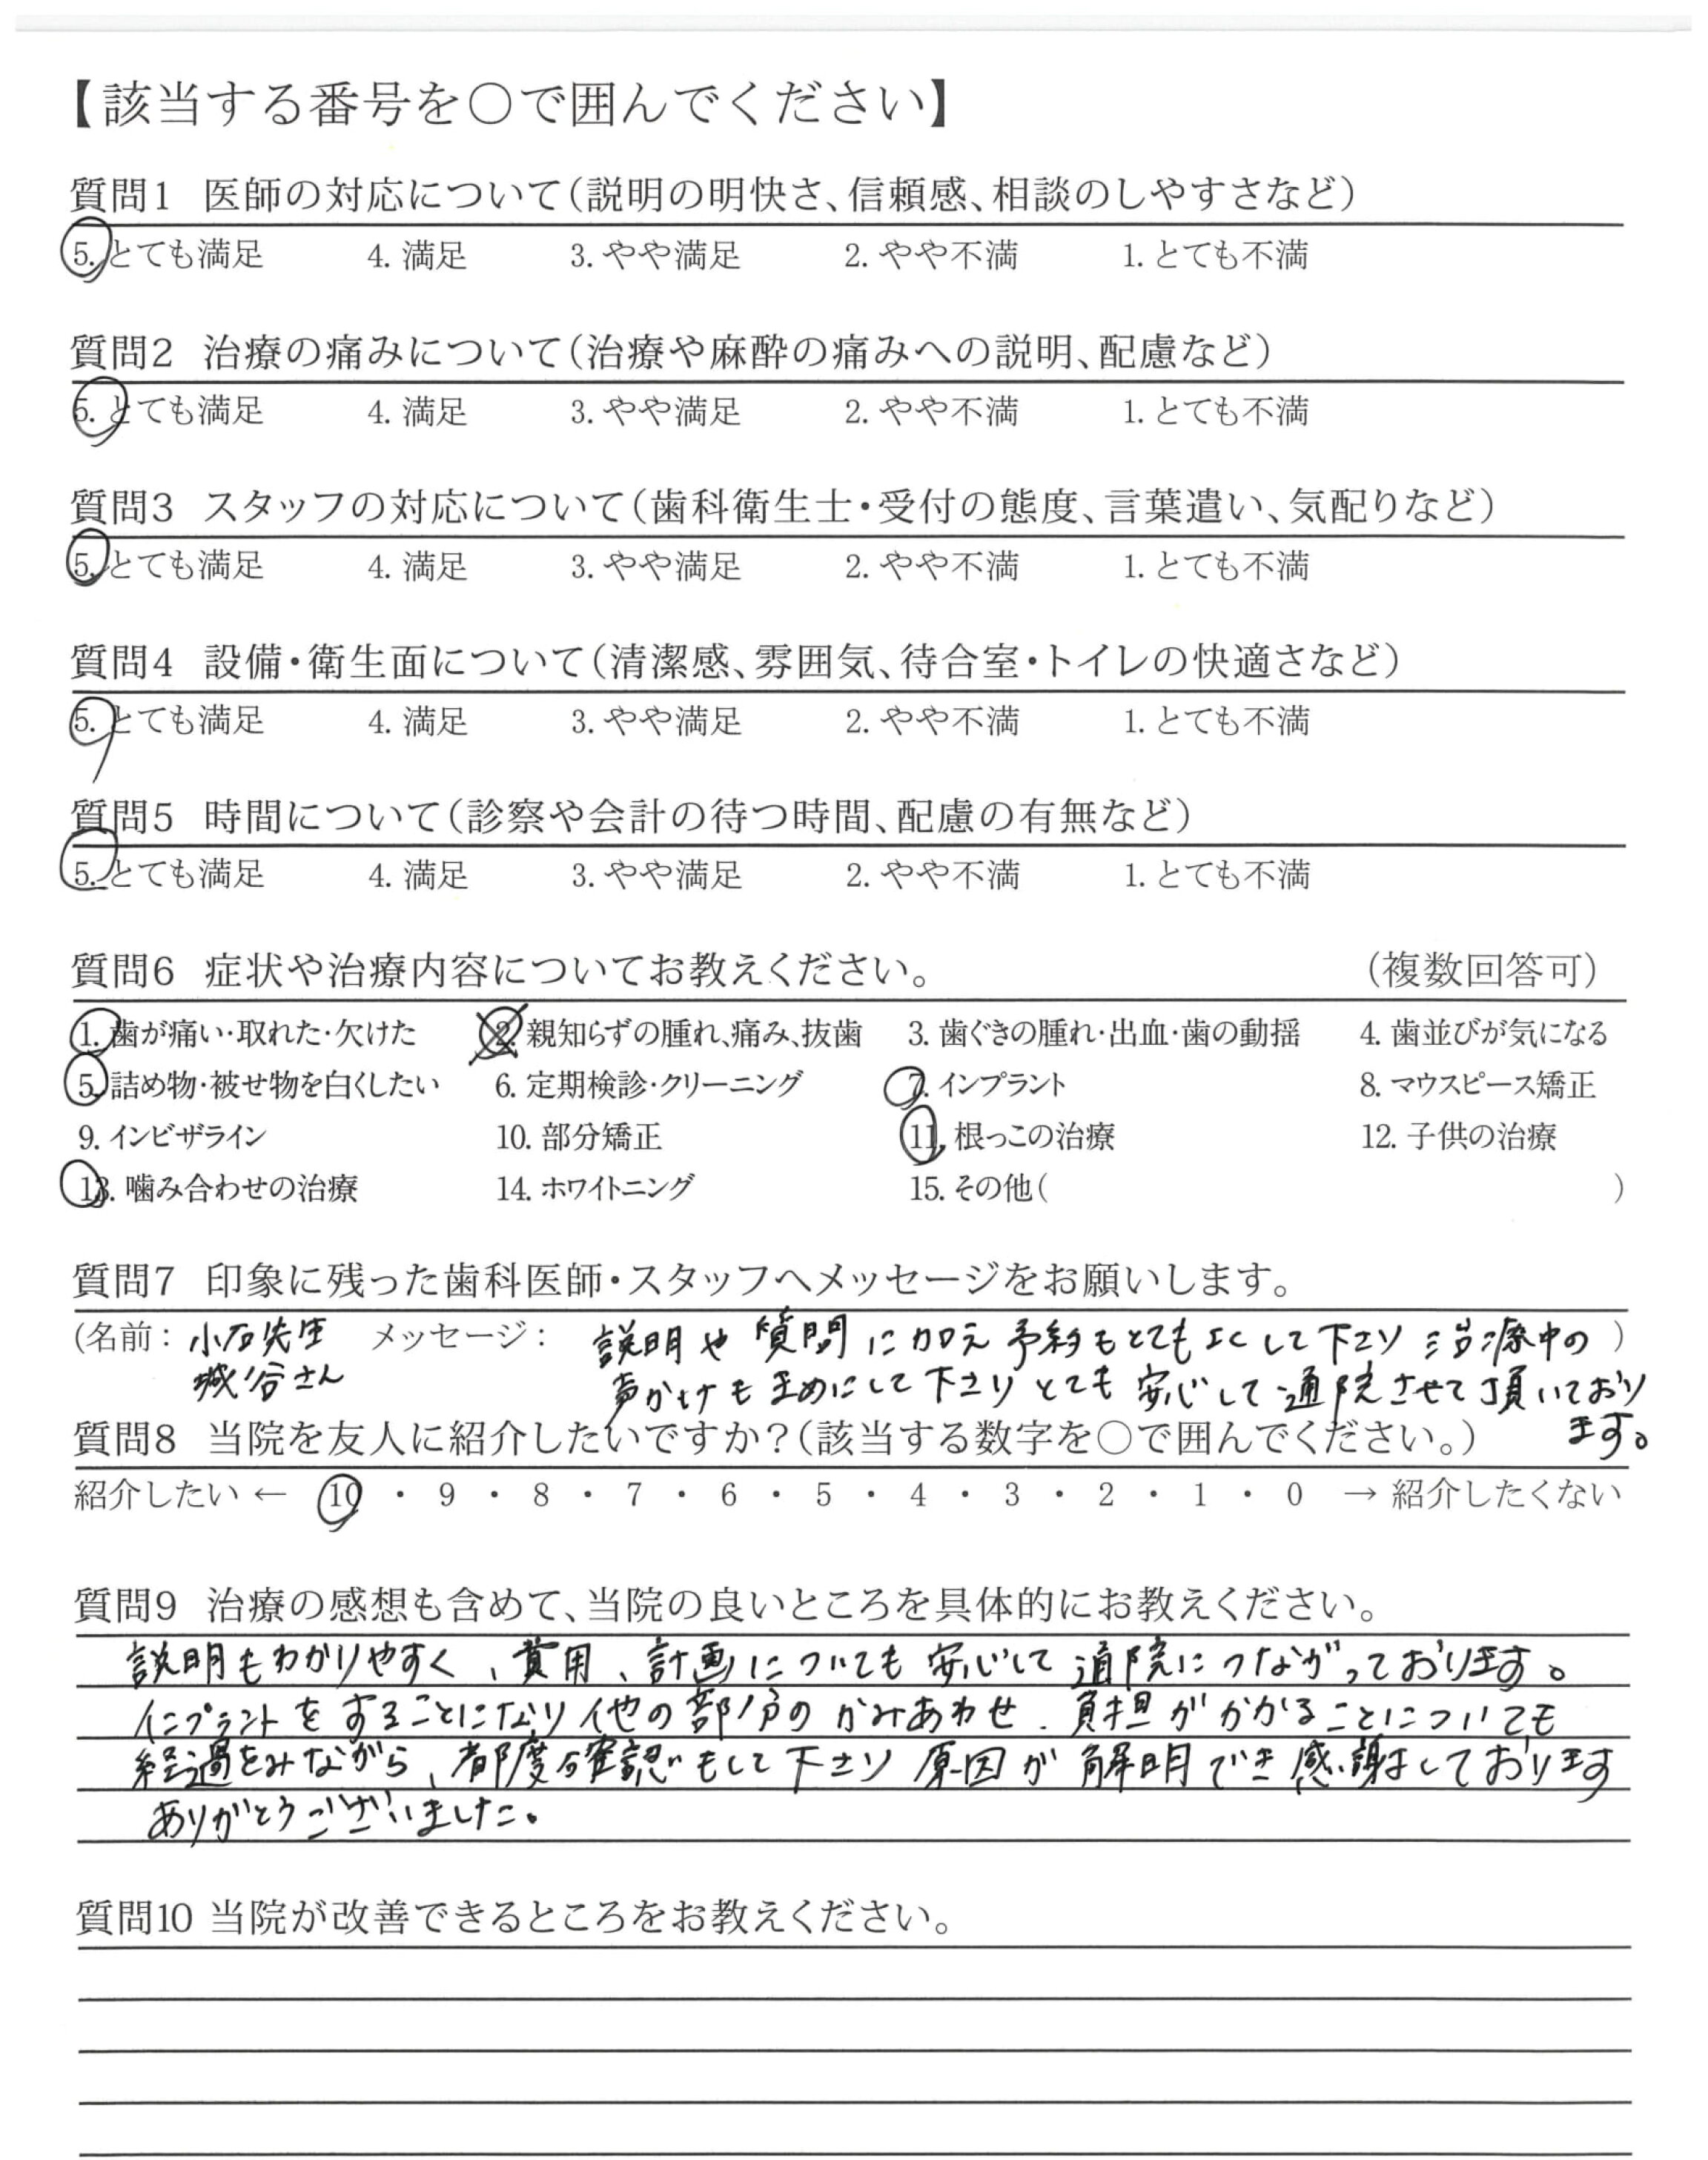 【該当する番号を○で囲んでください】
質問1 医師の対応について(説明の明快さ、信頼感、相談のしやすさなど)
5. とても満足 4. 満足 3. やや満足 2. やや不満 1. とても不満
質問2 治療の痛みについて(治療や麻酔の痛みへの説明、配慮など)
5. とても満足 4. 満足 3. やや満足 2. やや不満 1. とても不満
質問3 スタッフの対応について(歯科衛生士・受付の態度、言葉遣い、気配りなど)
5. とても満足 4. 満足 3. やや満足 2. やや不満 1. とても不満
質問4 設備・衛生面について(清潔感、雰囲気、待合室・トイレの快適さなど)
5. とても満足 4. 満足 3. やや満足 2. やや不満 1. とても不満
質問5 時間について(診察や会計の待つ時間、配慮の有無など)
5. とても満足 4. 満足 3. やや満足 2. やや不満 1. とても不満
質問6 症状や治療内容についてお教えください。 (複数回答可)
1. 歯が痛い・取れた・欠けた 2. 親知らずの腫れ、痛み、抜歯 3. 歯ぐきの腫れ・出血・歯の動揺 4. 歯並びが気になる
5. 詰め物・被せ物を白くしたい 6. 定期検診・クリーニング 7. インプラント 8. マウスピース矯正
9. インビザライン 10. 部分矯正 11. 根っこの治療 12. 子供の治療
13. 噛み合わせの治療 14. ホワイトニング 15. その他( )
質問7 印象に残った歯科医師・スタッフへメッセージをお願いします。
(名前: 小石先生 メッセージ: 説明や質問に加え予約もとてもよくして下さり治療中の )
さん 声かけもまめにして下さりとても安心して通院させて頂いており
ます。
質問8 当院を友人に紹介したいですか?(該当する数字を○で囲んでください。)
紹介したい ← 10 ・ 9 ・ 8 ・ 7 ・ 6 ・ 5 ・ 4 ・ 3 ・ 2 ・ 1 ・ 0 → 紹介したくない
質問9 治療の感想も含めて、当院の良いところを具体的にお教えください。
説明もわかりやすく、費用、計画についても安心して通院につながっております。
インプラントをすることになり他の部分のかみあわせ、負担がかかることについても
経過をみながら、都度確認もして下さり原因が解明でき感謝しております
ありがとうございました。
質問10 当院が改善できるところをお教えください。